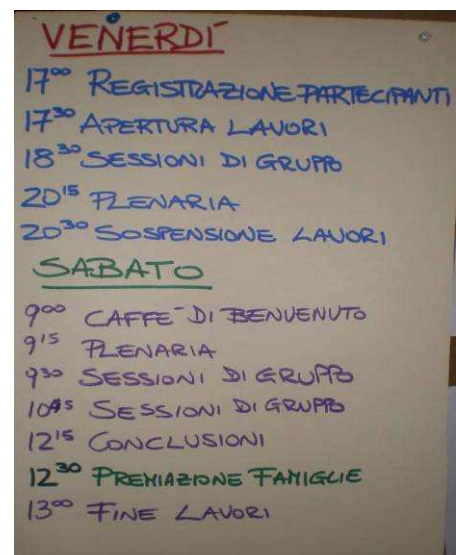 VENERDÌ
17⁰⁰ REGISTRAZIONE PARTECIPANTI
17³⁰ APERTURA LAVORI
18³⁰ SESSIONI DI GRUPPO
20¹⁵ PLENARIA
20³⁰ SOSPENSIONE LAVORI
SABATO
9⁰⁰ CAFFÈ DI BENVENUTO
9¹⁵ PLENARIA
9³⁰ SESSIONI DI GRUPPO
10⁴⁵ SESSIONI DI GRUPPO
12¹⁵ CONCLUSIONI
12³⁰ PREMIAZIONE FAMIGLIE
13⁰⁰ FINE LAVORI